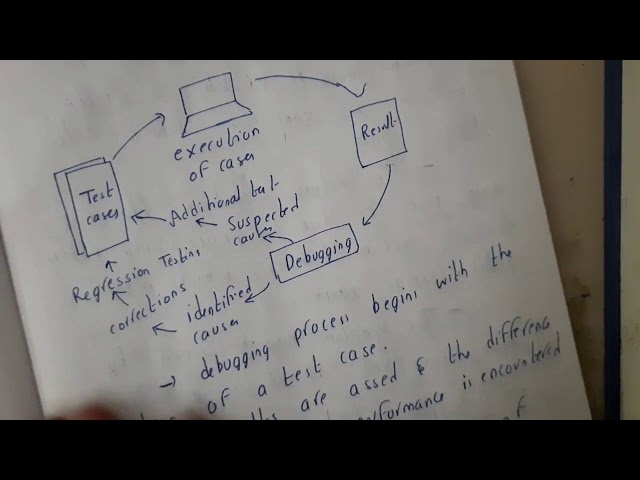 execution
of cases
Result
Test
cases
Additional test
Suspected
causes
Debugging
Regression Testing
corrections
identified
causes
→ debugging process begins with the
of a test case.
are assed & the difference
performance is encountered
of